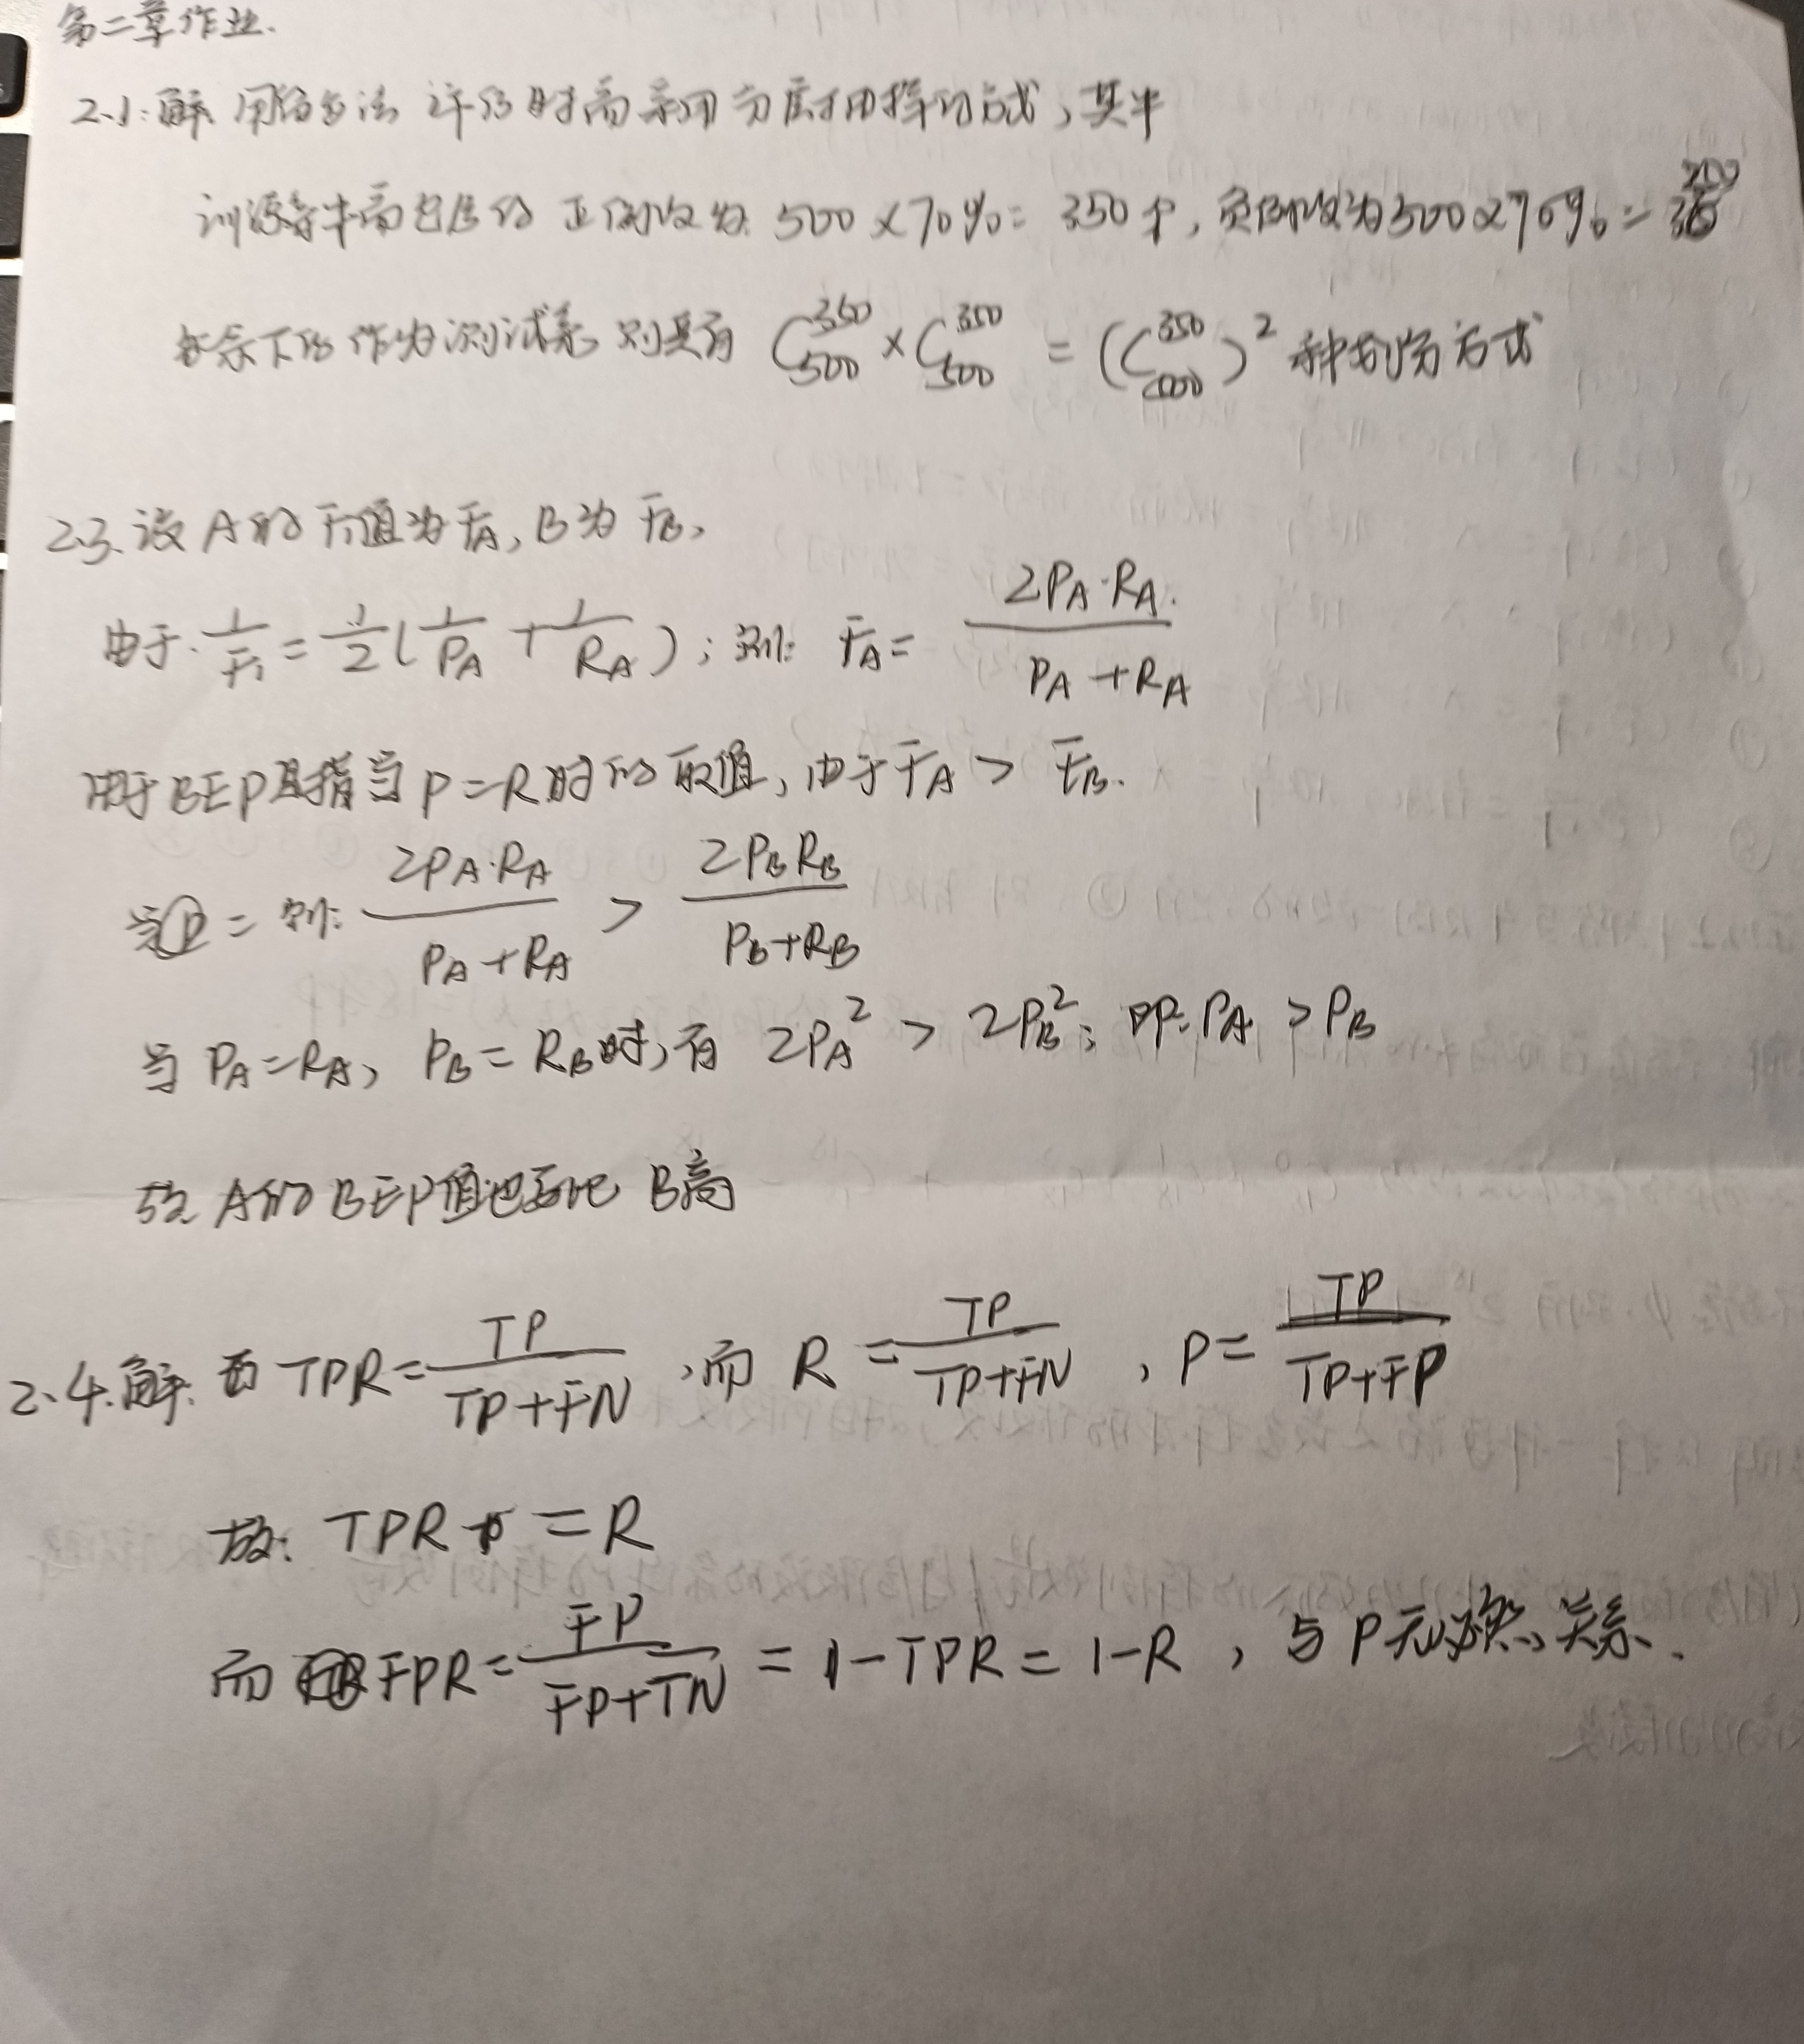 第二章作业.
2.1:解 用留出法 评估时需采用分层抽样的方式,其中
训练集中需包含的 正例数为 500×70%=350个,负例数为500×70%=350
故余下的作为测试集 则共有 C_{500}^{350} × C_{500}^{350} = (C_{500}^{350})^2 种划分方式
2.3.设 A的F1值为F_A, B为F_B,
由于: 1/F1 = 1/2(1/P_A + 1/R_A); 则: F_A = 2P_A·R_A / (P_A + R_A)
由于BEP是指当P=R时的取值, 由于F_A > F_B.
则: 2P_A·R_A / (P_A + R_A) > 2P_B R_B / (P_B + R_B)
当 P_A=R_A, P_B=R_B时,有 2P_A^2 > 2P_B^2; 即: P_A > P_B
故 A的BEP值也要比 B高
2.4.解: TPR = TP / (TP+FN) ,而 R = TP / (TP+FN) , P = TP / (TP+FP)
故: TPR = R
而 FPR = FP / (FP+TN) = 1-TPR = 1-R , 与P无必然关系.